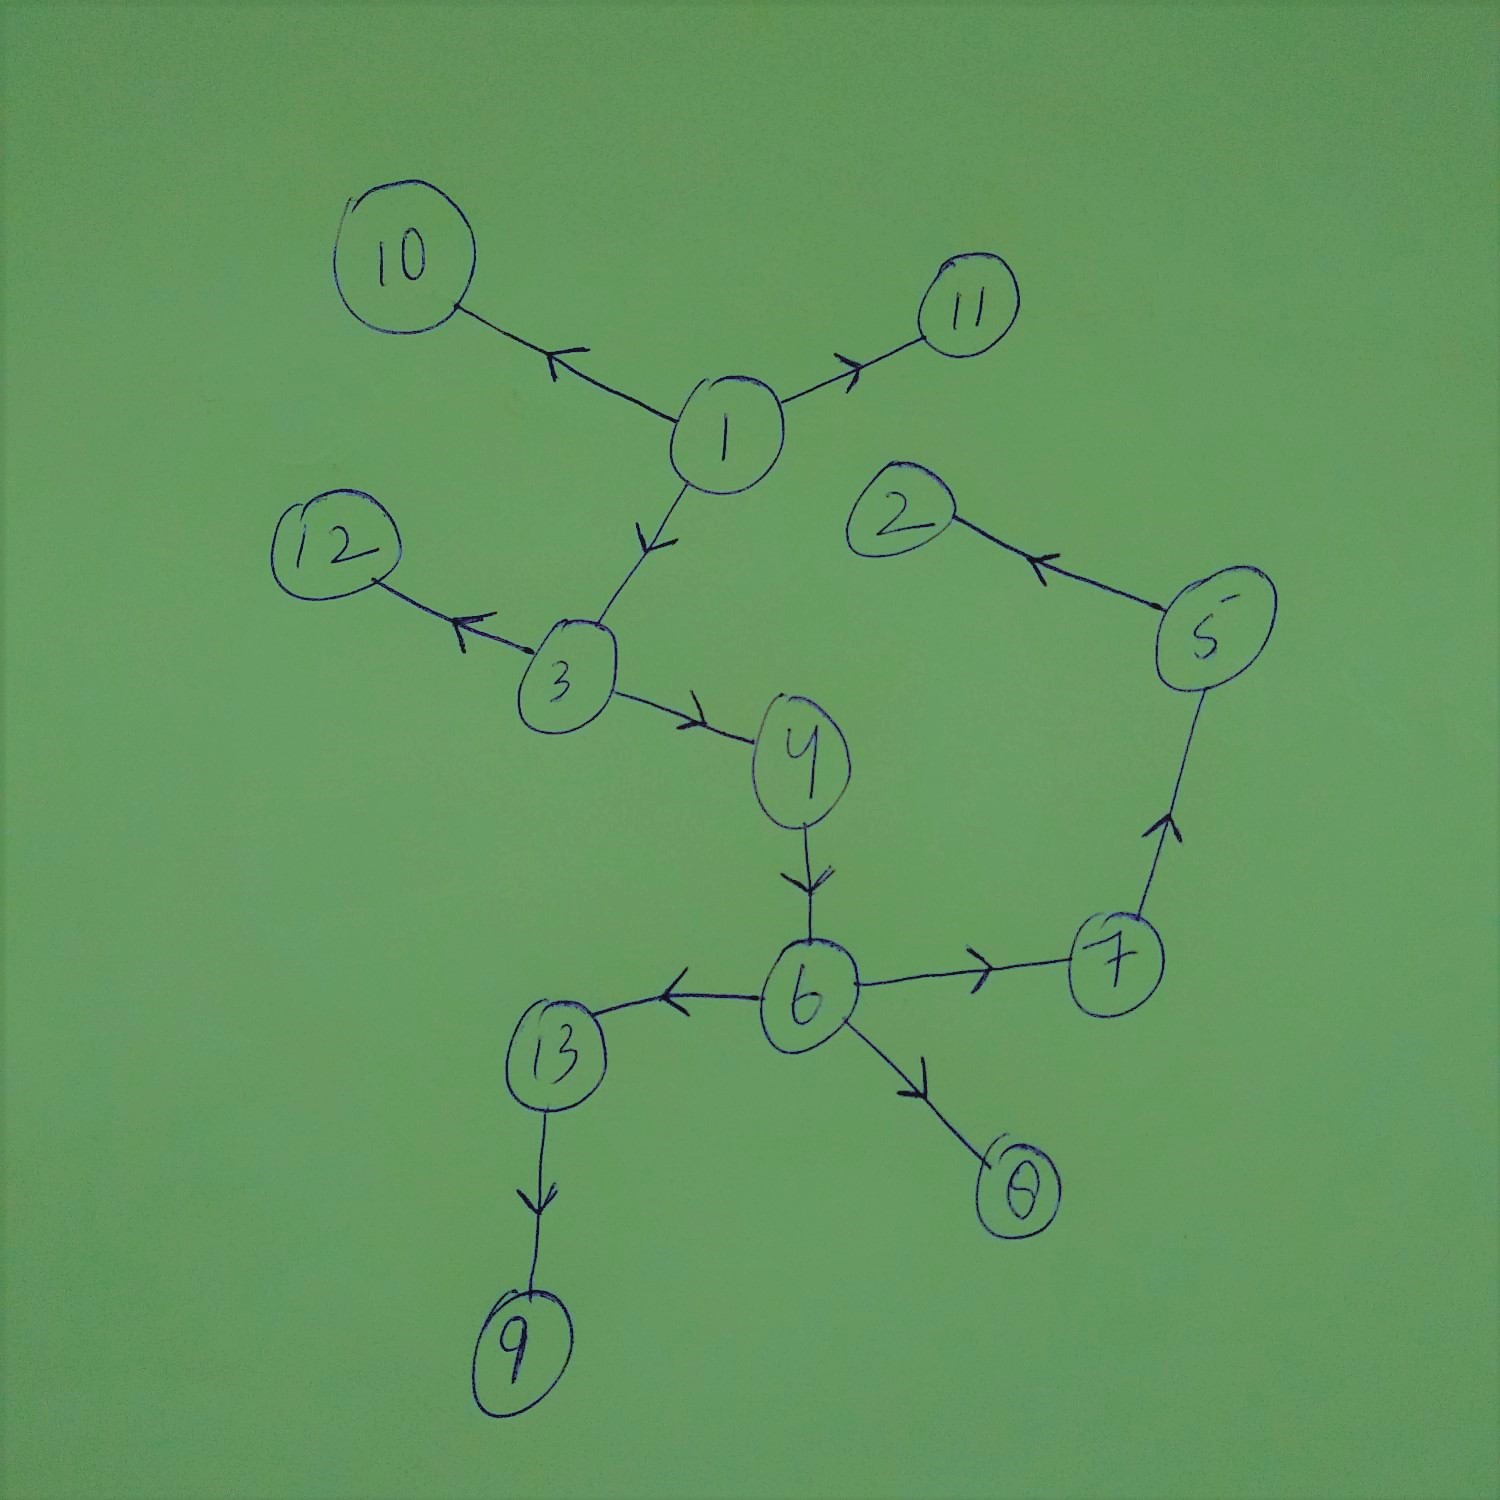 10
11
1
2
12
5
3
4
7
6
13
8
9